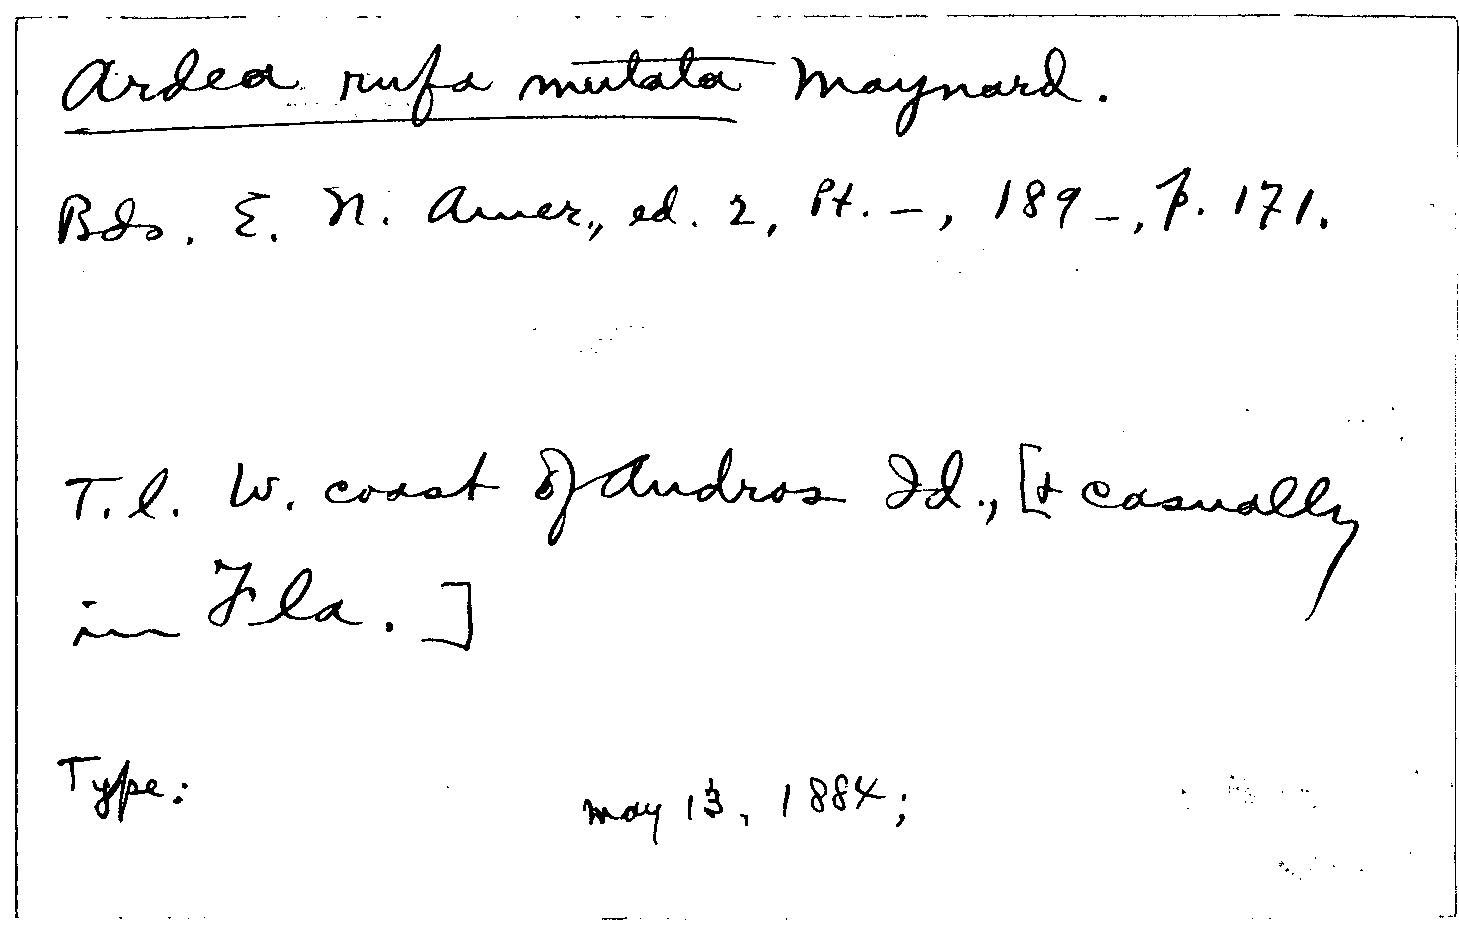 Ardea rufa mutata Maynard.
Bds. E. N. Amer., ed. 2, Pt. –, 189–, p. 171.
T.l. W. coast of Andros Id., [& casually
in Fla.]
Type: May 13, 1884;